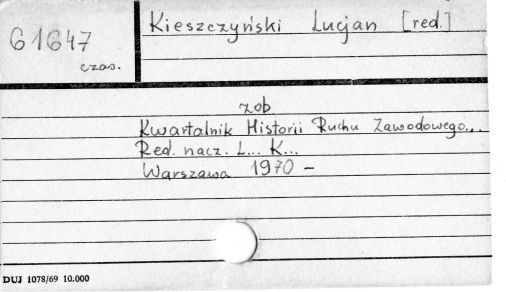 61647
czas.
Kieszczyński Lucjan [red.]
zob.
Kwartalnik Historii Ruchu Zawodowego...
Red. nacz. L... K...
Warszawa 1970 –
DUJ 1078/69 10.000